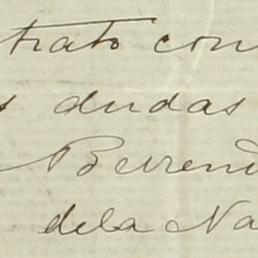 trato con
s dudas
Berrend
dela Na